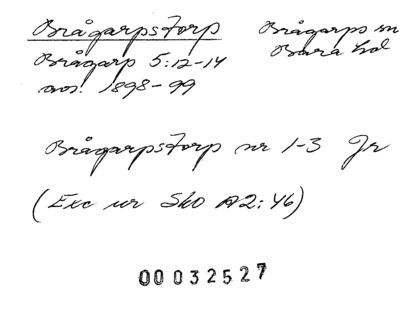 Brågarpstorp
Brågarps sn
Bara hd
Brågarp 5:12-14
avs. 1898-99
Brågarpstorp nr 1-3 Jr
(Exc ur Sko A2:46)
00032527